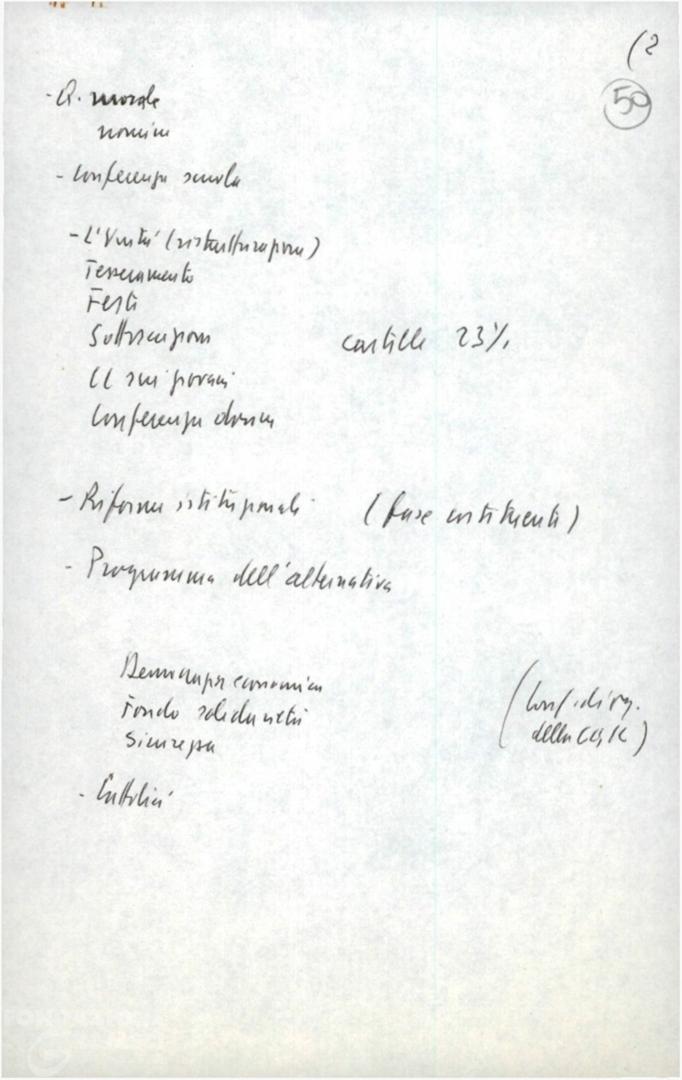 (2
50
- Q. morale
nomine
- Conferenza scuola
- L'Unità (ristrutturazione)
Tesseramento
Feste
Sottoscrizione
cartelle 23%
CC sui giovani
Conferenza donne
- Riforme istituzionali (fase costituente)
- Programma dell'alternativa
Democrazia economica
Fondo solidarietà
Sicurezza
(Conf. di org.
della CGIL)
- Cattolici